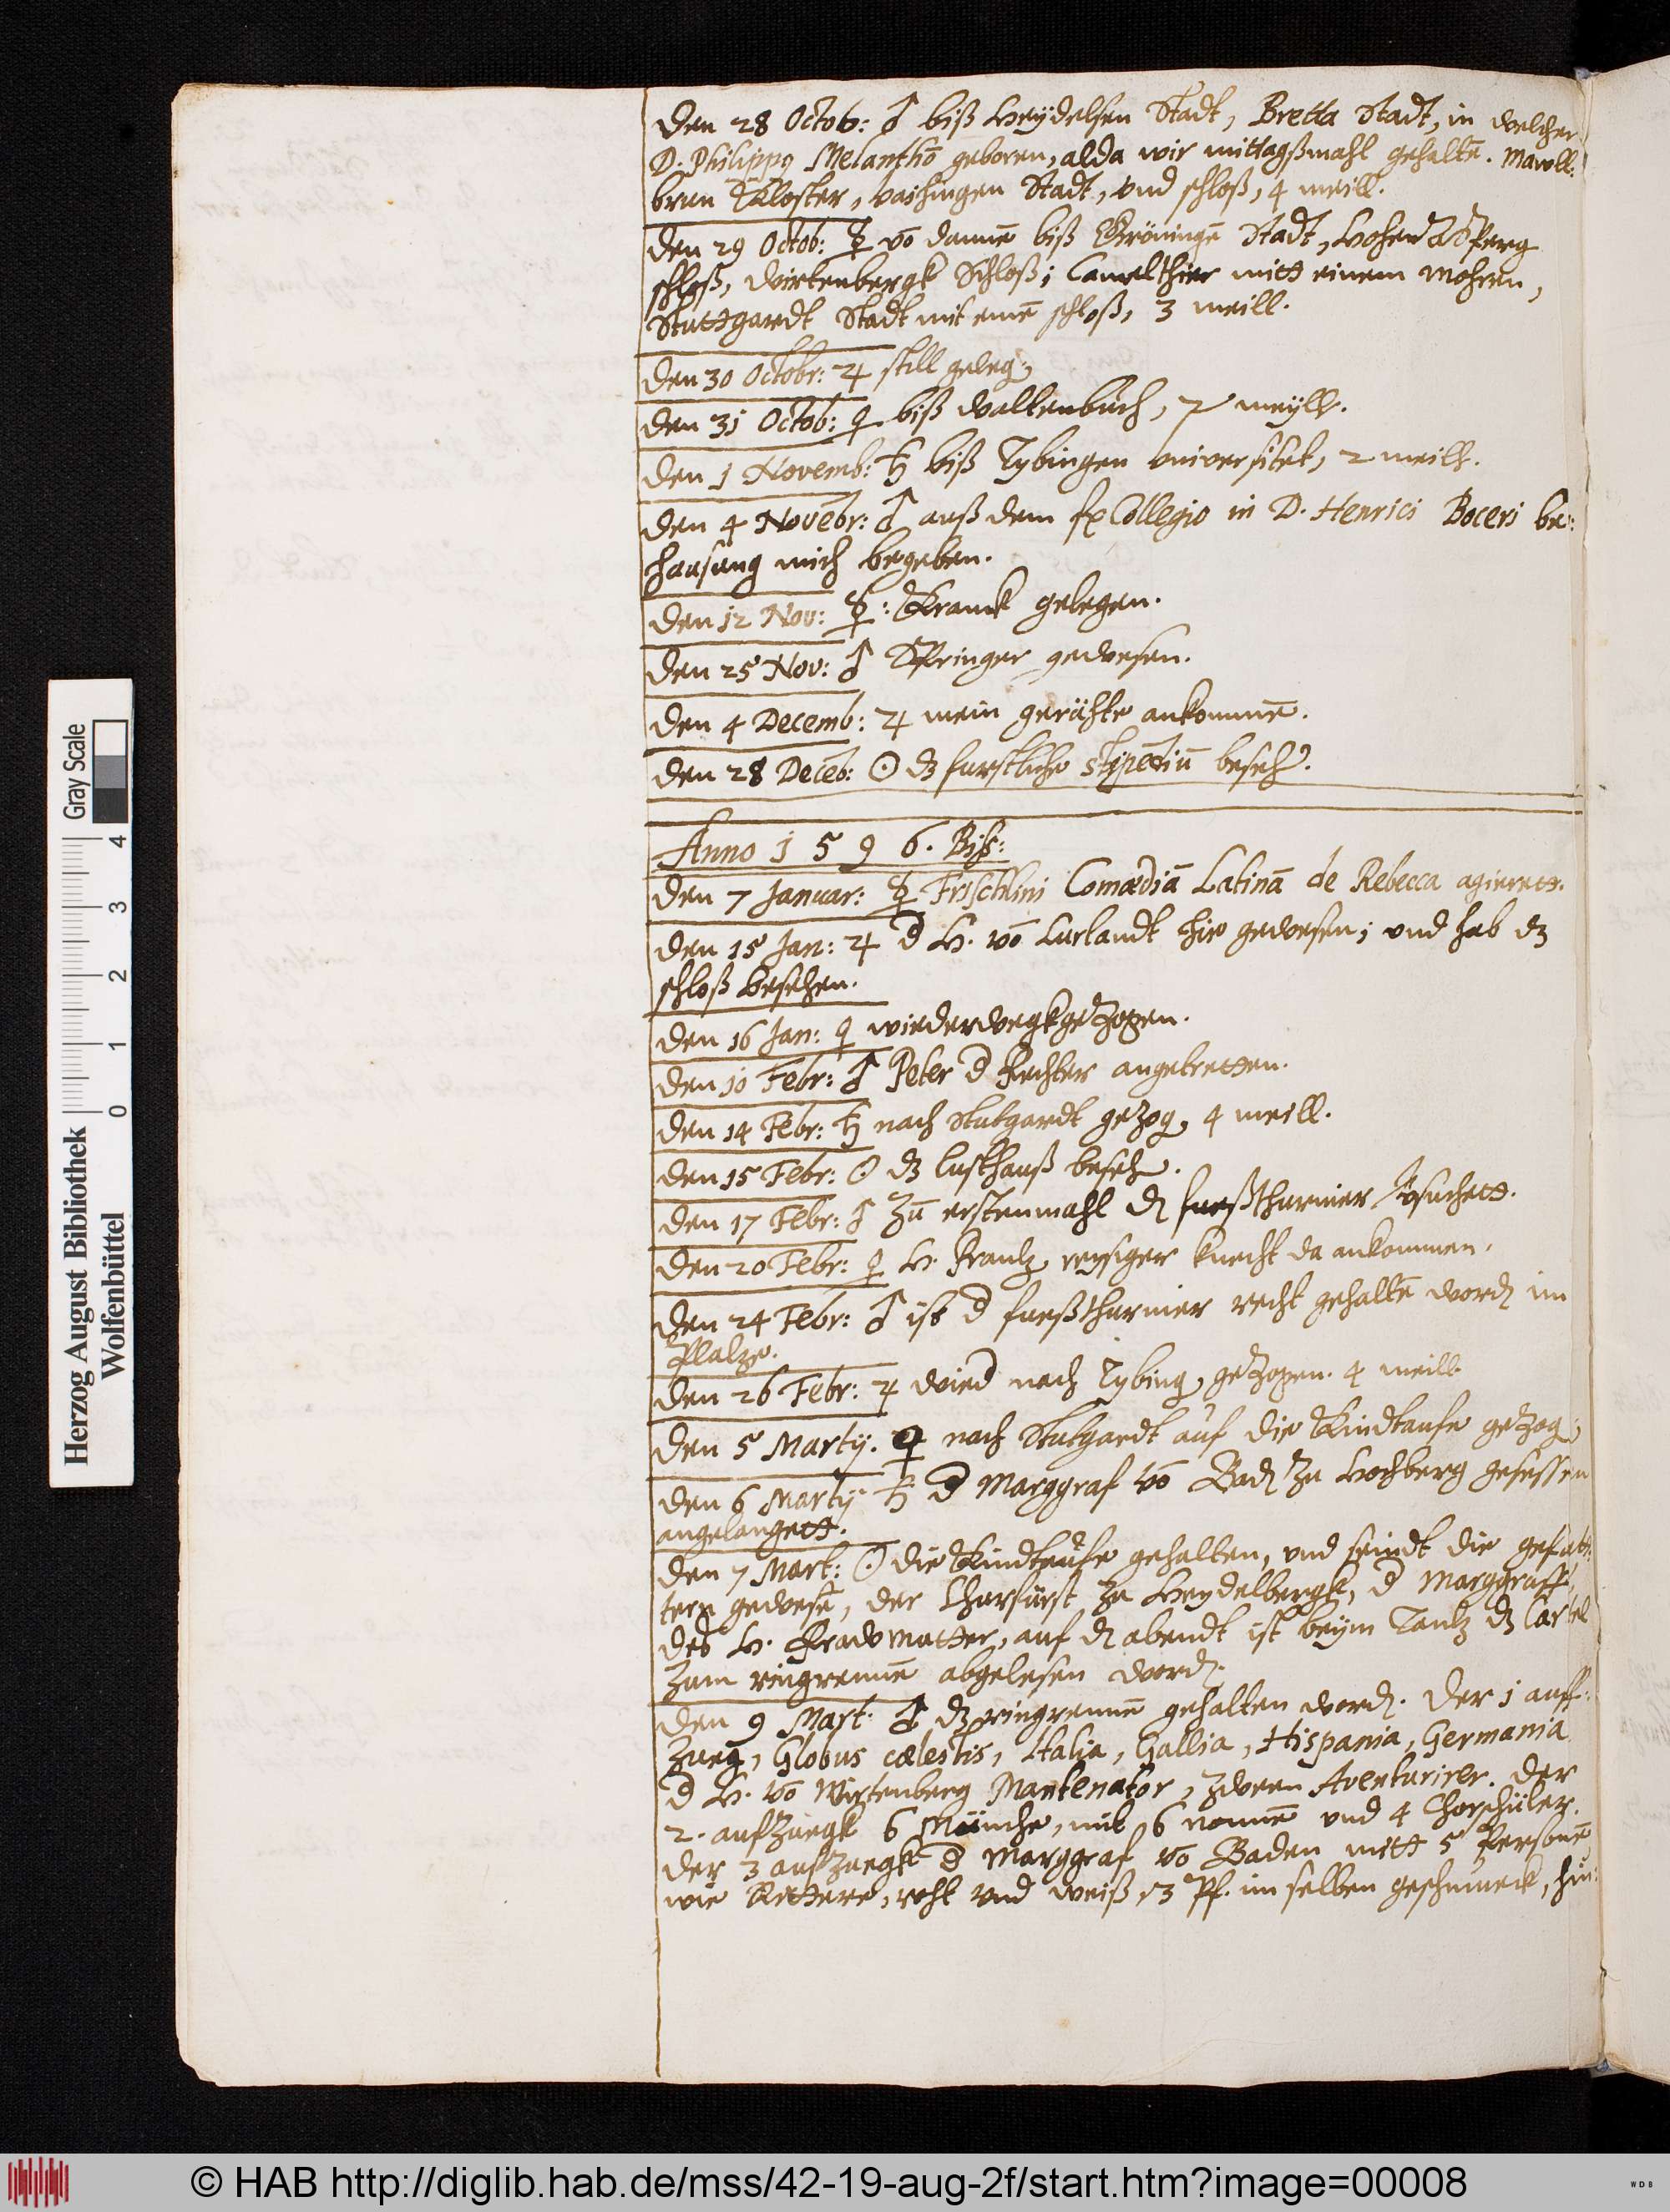 Den 28 Octob: ♂ biß Heydelsen Stadt, Bretta Stadt, in welcher
D. Philippꝰ Melanthō geboren, alda wir mittagßmahl gehaltē. Mavll:
brun Kloster, Vaihingen Stadt, vnd schloß, 4 meill.
Den 29 Octob: ☿ vō dannē biß Gröningē Stadt, Hohen Asperg
schloß, Wirtenbergk Schloß; Camelthier mitt einem Mohren,
Stuttgardt Stadt mit einē schloß, 3 meill.
Den 30 Octobr: ♃ still geleg.
Den 31 Octob: ♀ biß Waltenbuch, 2 meyll.
Den 1 Novemb: ♄ biß Tybingen Vniversitet, 2 meill.
Den 4 Novēbr: ♂ auß dem Collegio in D. Henrici Boceri be:
hausung mich begeben.
Den 12 Nov: ☿: Kranck gelegen.
Den 25 Nov: ♂ Springer gewesen.
Den 4 Decemb: ♃ mein geräthe ankommē.
Den 28 Decēb: ☉ dz furstliche Stipēdiū beseh.
Anno 1596. Biß:
Den 7 Januar: ☿ Frischlini Comœdiā Latinā de Rebecca agierett.
Den 15 Jan: ♃ d H. vō Curlandt hie gewesen; vnd hab dz
schloß besehen.
Den 16 Jan: ♀ wiederwegkgezogen.
Den 10 Febr: ♂ Peter d Fechter angetretten.
Den 14 Febr: ♄ nach Stutgardt gezog, 4 meill.
Den 15 Febr: ☉ dz lusthauß beseh.
Den 17 Febr: ♂ Zū erstenmahl dē fueßthurnier vsuchett.
Den 20 Febr: ♀ H. Frantz reysiger knecht da ankommen.
Den 24 Febr: ♂ ist d fueßthurnier recht gehaltē wordē im
Platze.
Den 26 Febr: ♃ wied nach Tybing, gezogen. 4 meill.
Den 5 Martij. ♀ nach Stutgardt auf die Kindtaufe gezog,
Den 6 Martij ♄ d Marggraf vō Badē zu Hochberg gesessen
angelangett.
Den 7 Mart: ☉ die Kindtaufe gehalten, vnd seindt die gefatt:
tern gewesē, der Churfürst zu Heydelbergk, d Marggraff,
des H. Fraw Mutter, auf dē abendt ist beym Tantz dz Cartel
zum ringrennē abgelesen wordē.
Den 9 Mart. ♂ dz ringrennē gehalten wordē. Der 1 auff:
zueg, Globus cœlestis, Italia, Gallia, Hispania, Germania
d H. vō Wirtenberg Mantenator, zween Aventurirer. Der
2. aufzuegk 6 Münche, mit 6 nonnē vnd 4 Chorschüler.
Der 3 aufzuegk d Marggraf vō Baden mitt 5 Personē
wie Rittere, roht vnd weiß, 3 Pf. im selben geschmuck, hin:
Gray Scale
0 1 2 3 4
Herzog August Bibliothek
Wolfenbüttel
© HAB http://diglib.hab.de/mss/42-19-aug-2f/start.htm?image=00008
WDB